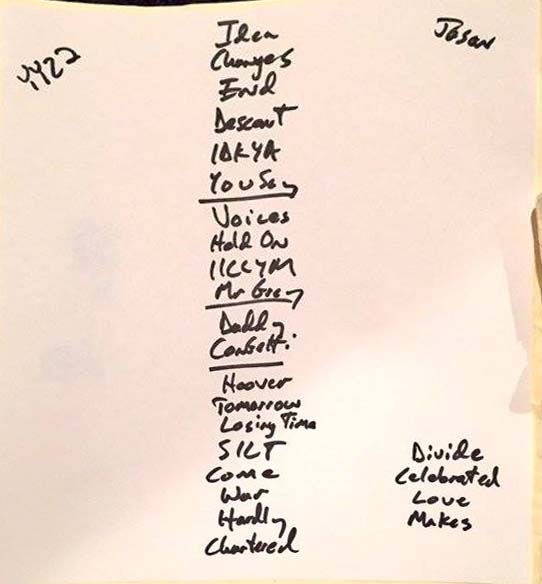 Idea
Jason
Changes
YY22
End
Descent
IDKYA
You Say
Voices
Hold On
IICCYM
Mr Grey
Daddy
Confetti
Hoover
Tomorrow
Losing Time
SILT
Divide
Come
Celebrated
War
Love
Hardly
Makes
Chartered